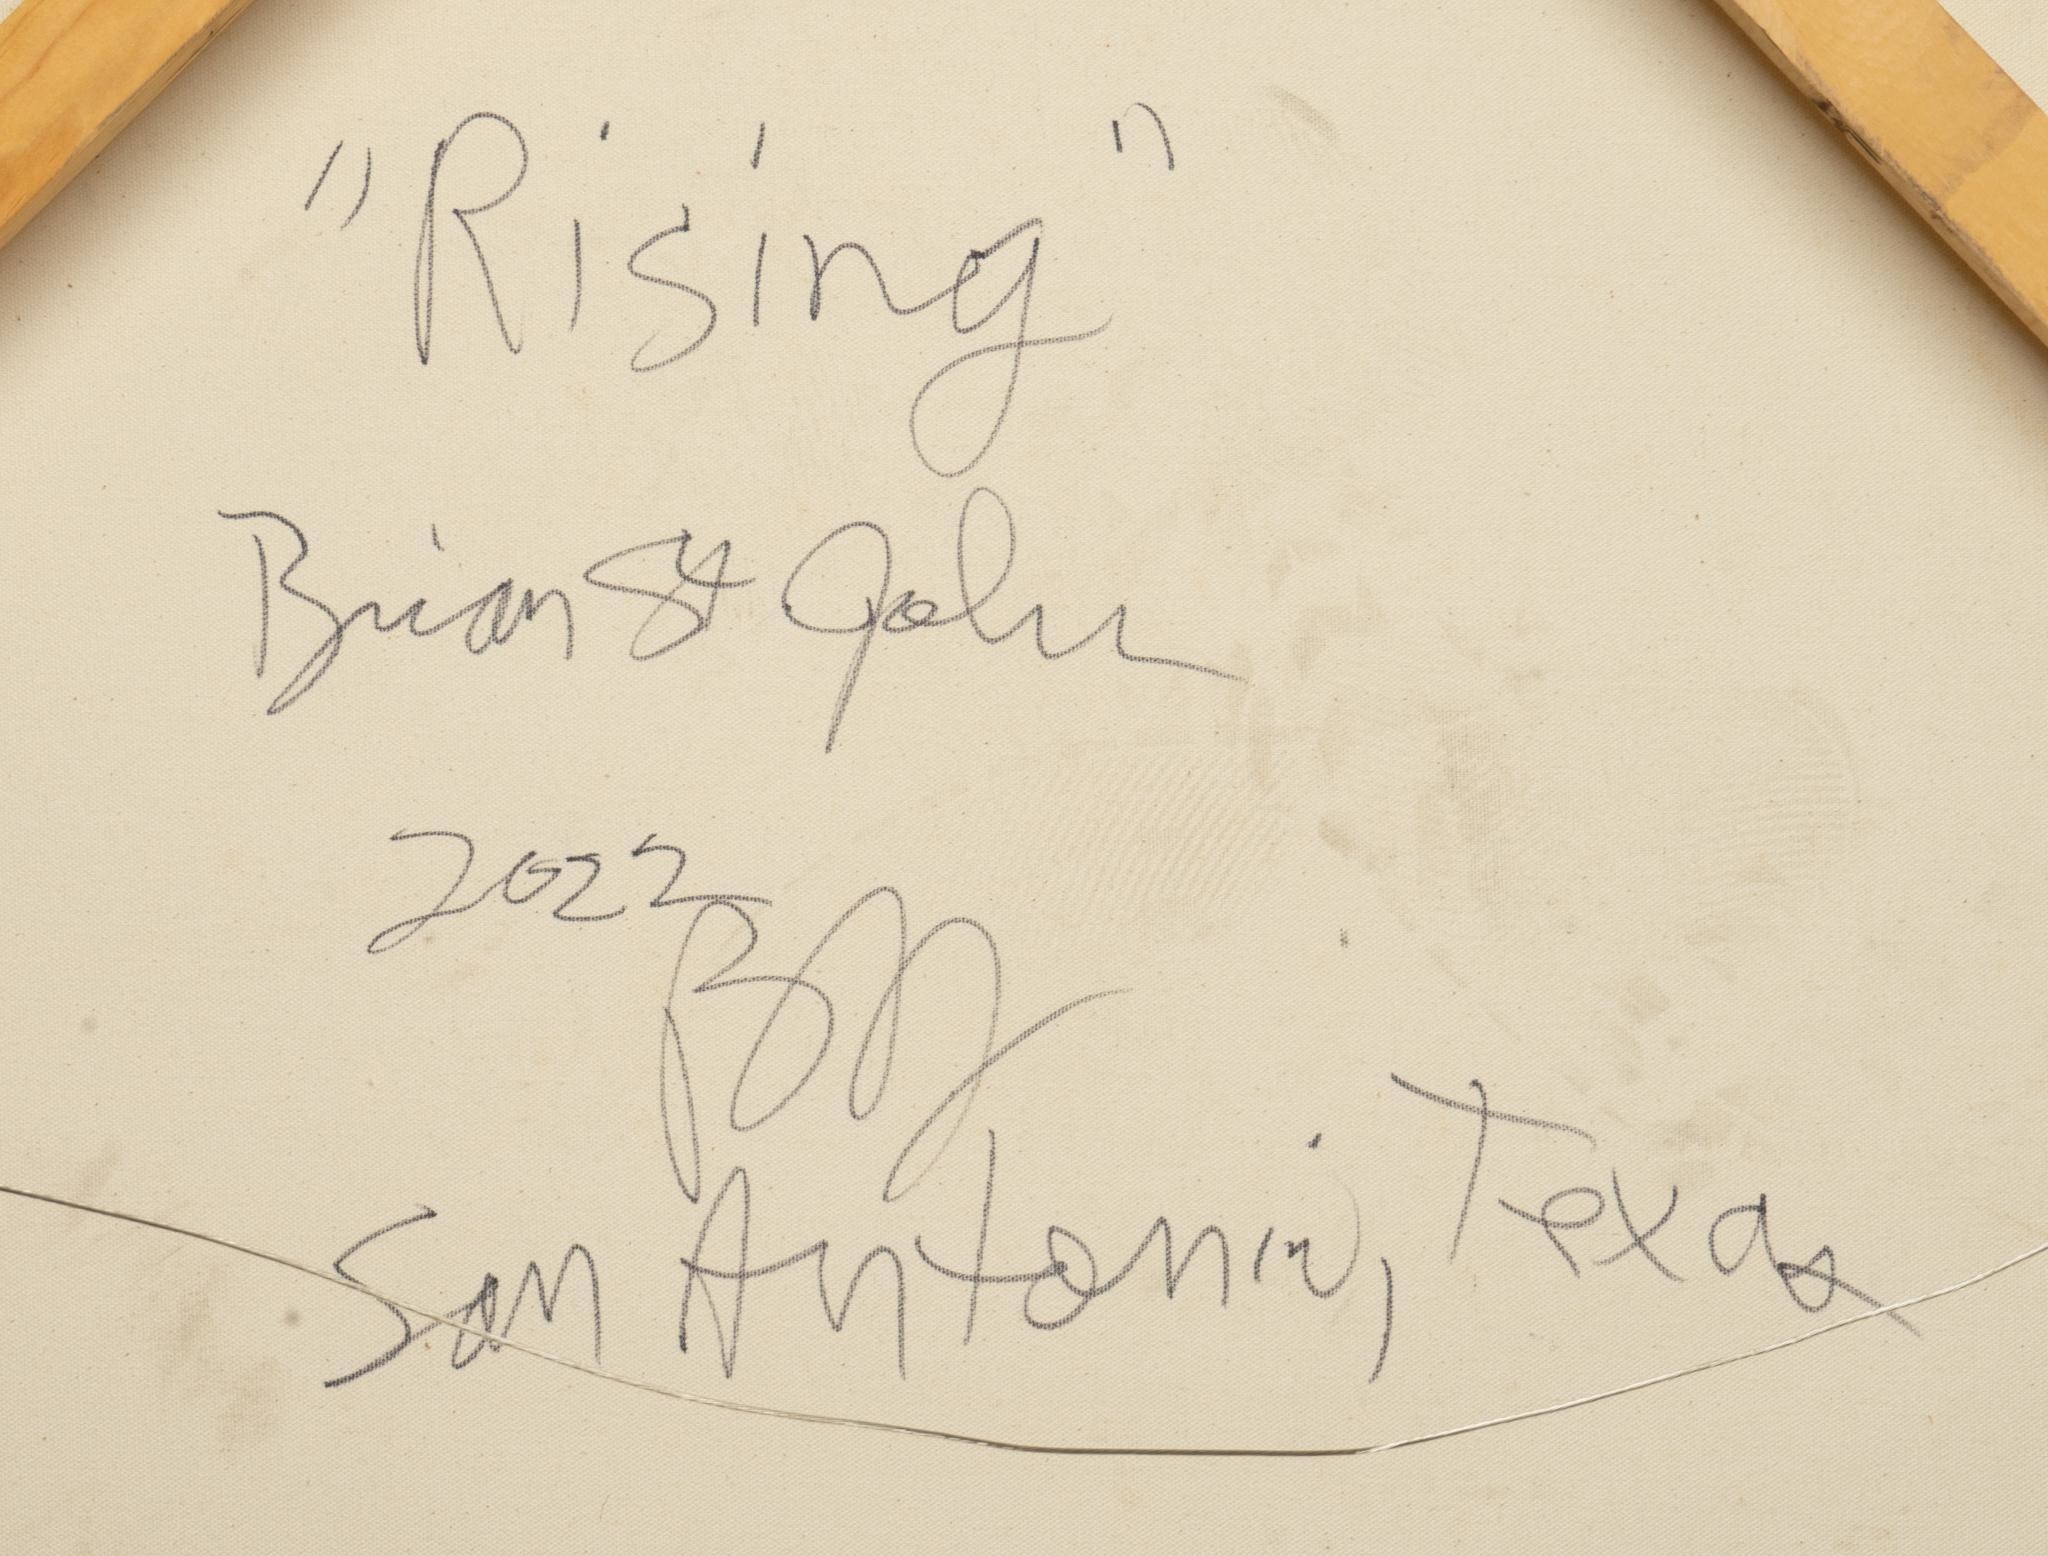 "Rising"
Brian St John
2022
San Antonio, Texas